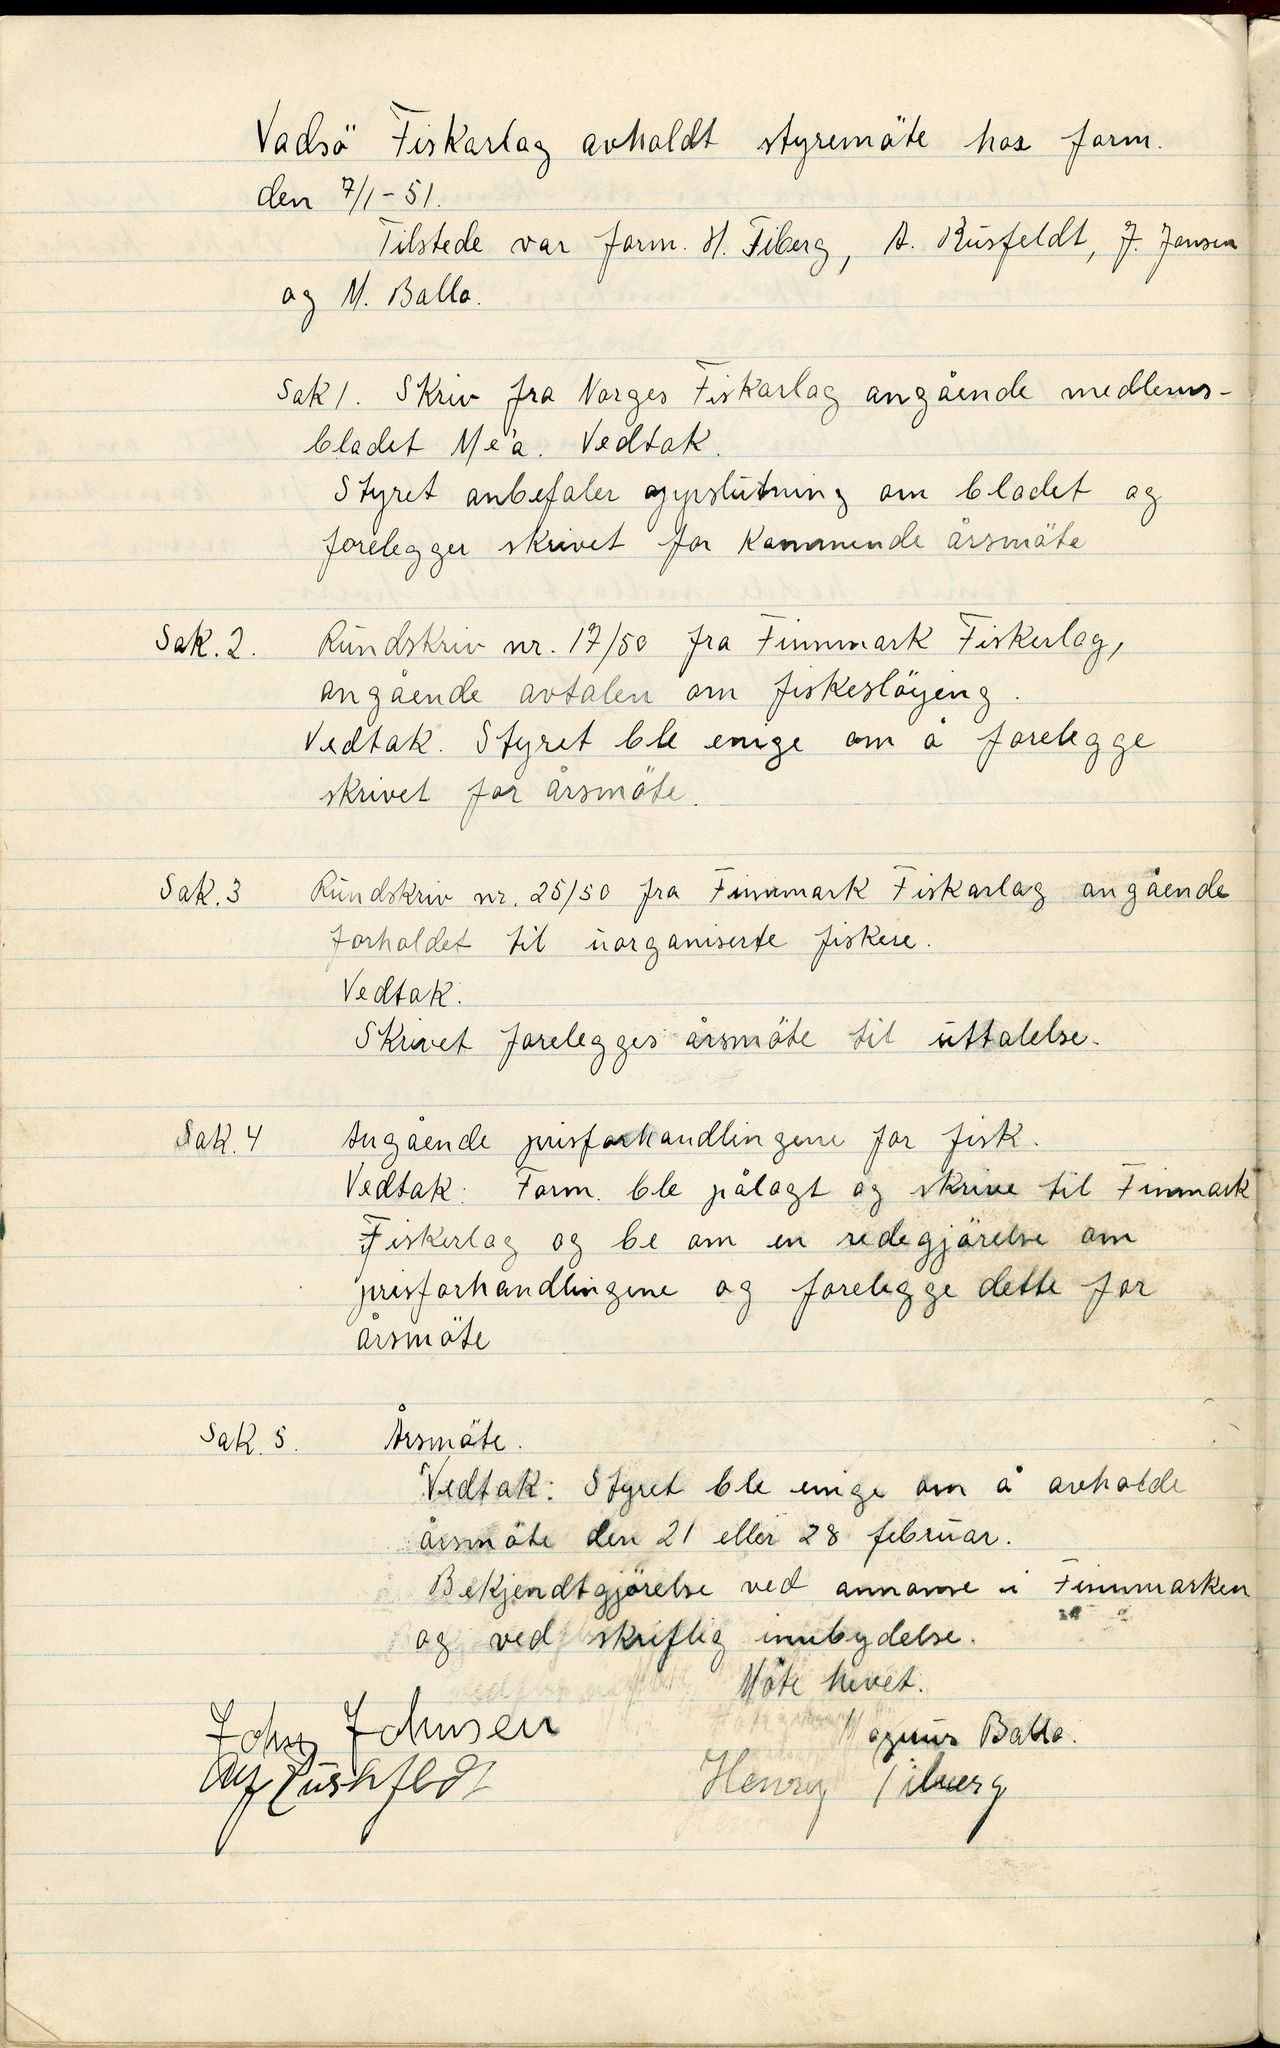 Vadsö Fiskarlag avholdt styremöte hos form.
den 7/1-51.
Tilstede var form. H. Fiberg, A. Rusfeldt, J. Jonsen
og M. Balla.
Sak 1. Skriv fra Norges Fiskarlag angående medlems-
bladet Me'a. Vedtak.
Styret anbefaler oppslutning om bladet og
forelegger skrivet for Kommende årsmöte
Sak. 2. Rundskriv nr. 17/50 fra Finnmark Fiskerlag,
angående avtalen om fiskeslöying.
Vedtak. Styret ble enige om å forelegge
skrivet for årsmöte.
Sak. 3 Rundskriv nr. 25/50 fra Finnmark Fiskarlag angående
forholdet til uorganiserte fiskere.
Vedtak.
Skrivet forelegges årsmöte til uttalelse.
Sak. 4 Angående prisforhandlingene for fisk.
Vedtak: Form. ble pålagt og skrive til Finmark
Fiskerlag og be om en redegjörelse om
prisforhandlingene og forelegge dette for
årsmöte
Sak. 5. Årsmöte.
Vedtak: Styret ble enige om å avholde
årsmöte den 21 eller 28 februar.
Bekjendtgjörelse ved annonse i Finnmarken
og ved skriftlig innbydelse.
Möte hevet.
John Johnsen Magnus Balla.
Alf Rushfeldt Henry Fiberg